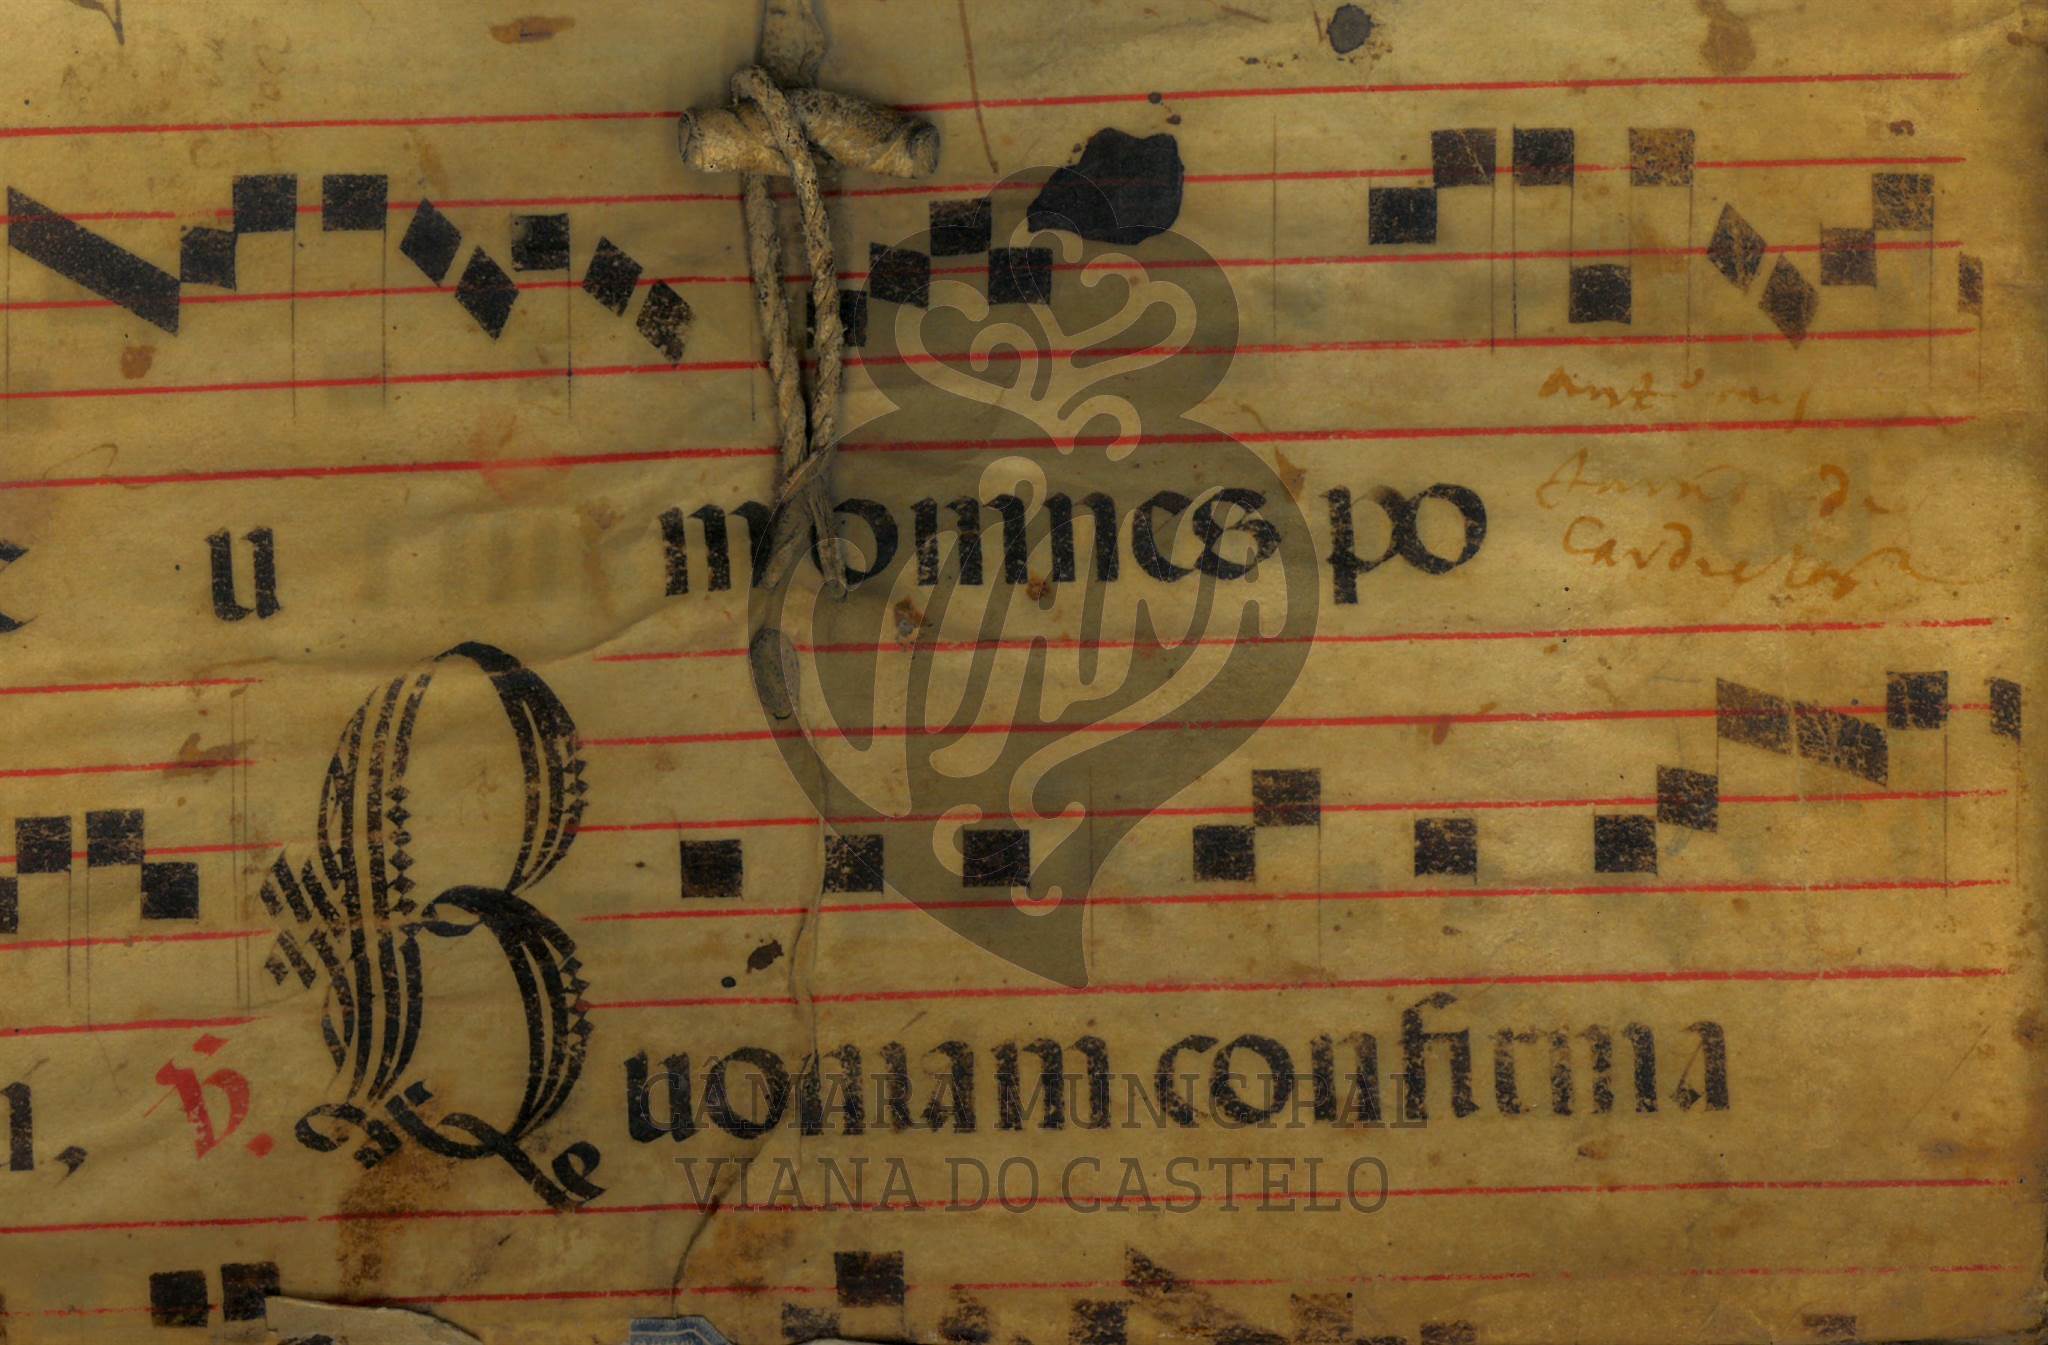 u m omnes po
de
V. Quoniam confirma
CÂMARA MUNICIPAL
VIANA DO CASTELO